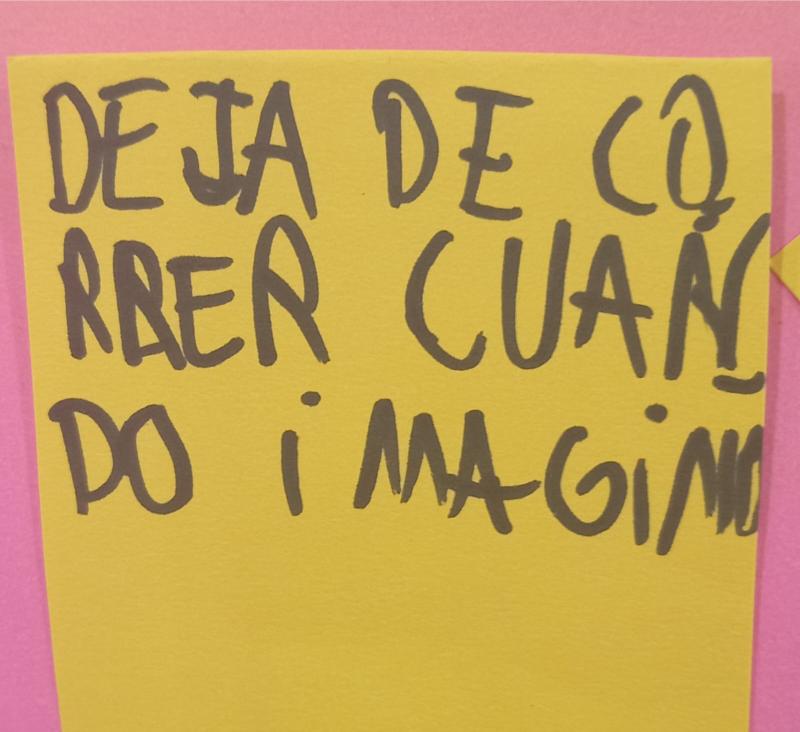 DEJA DE CO
RRER CUAN
DO iMAGiNO